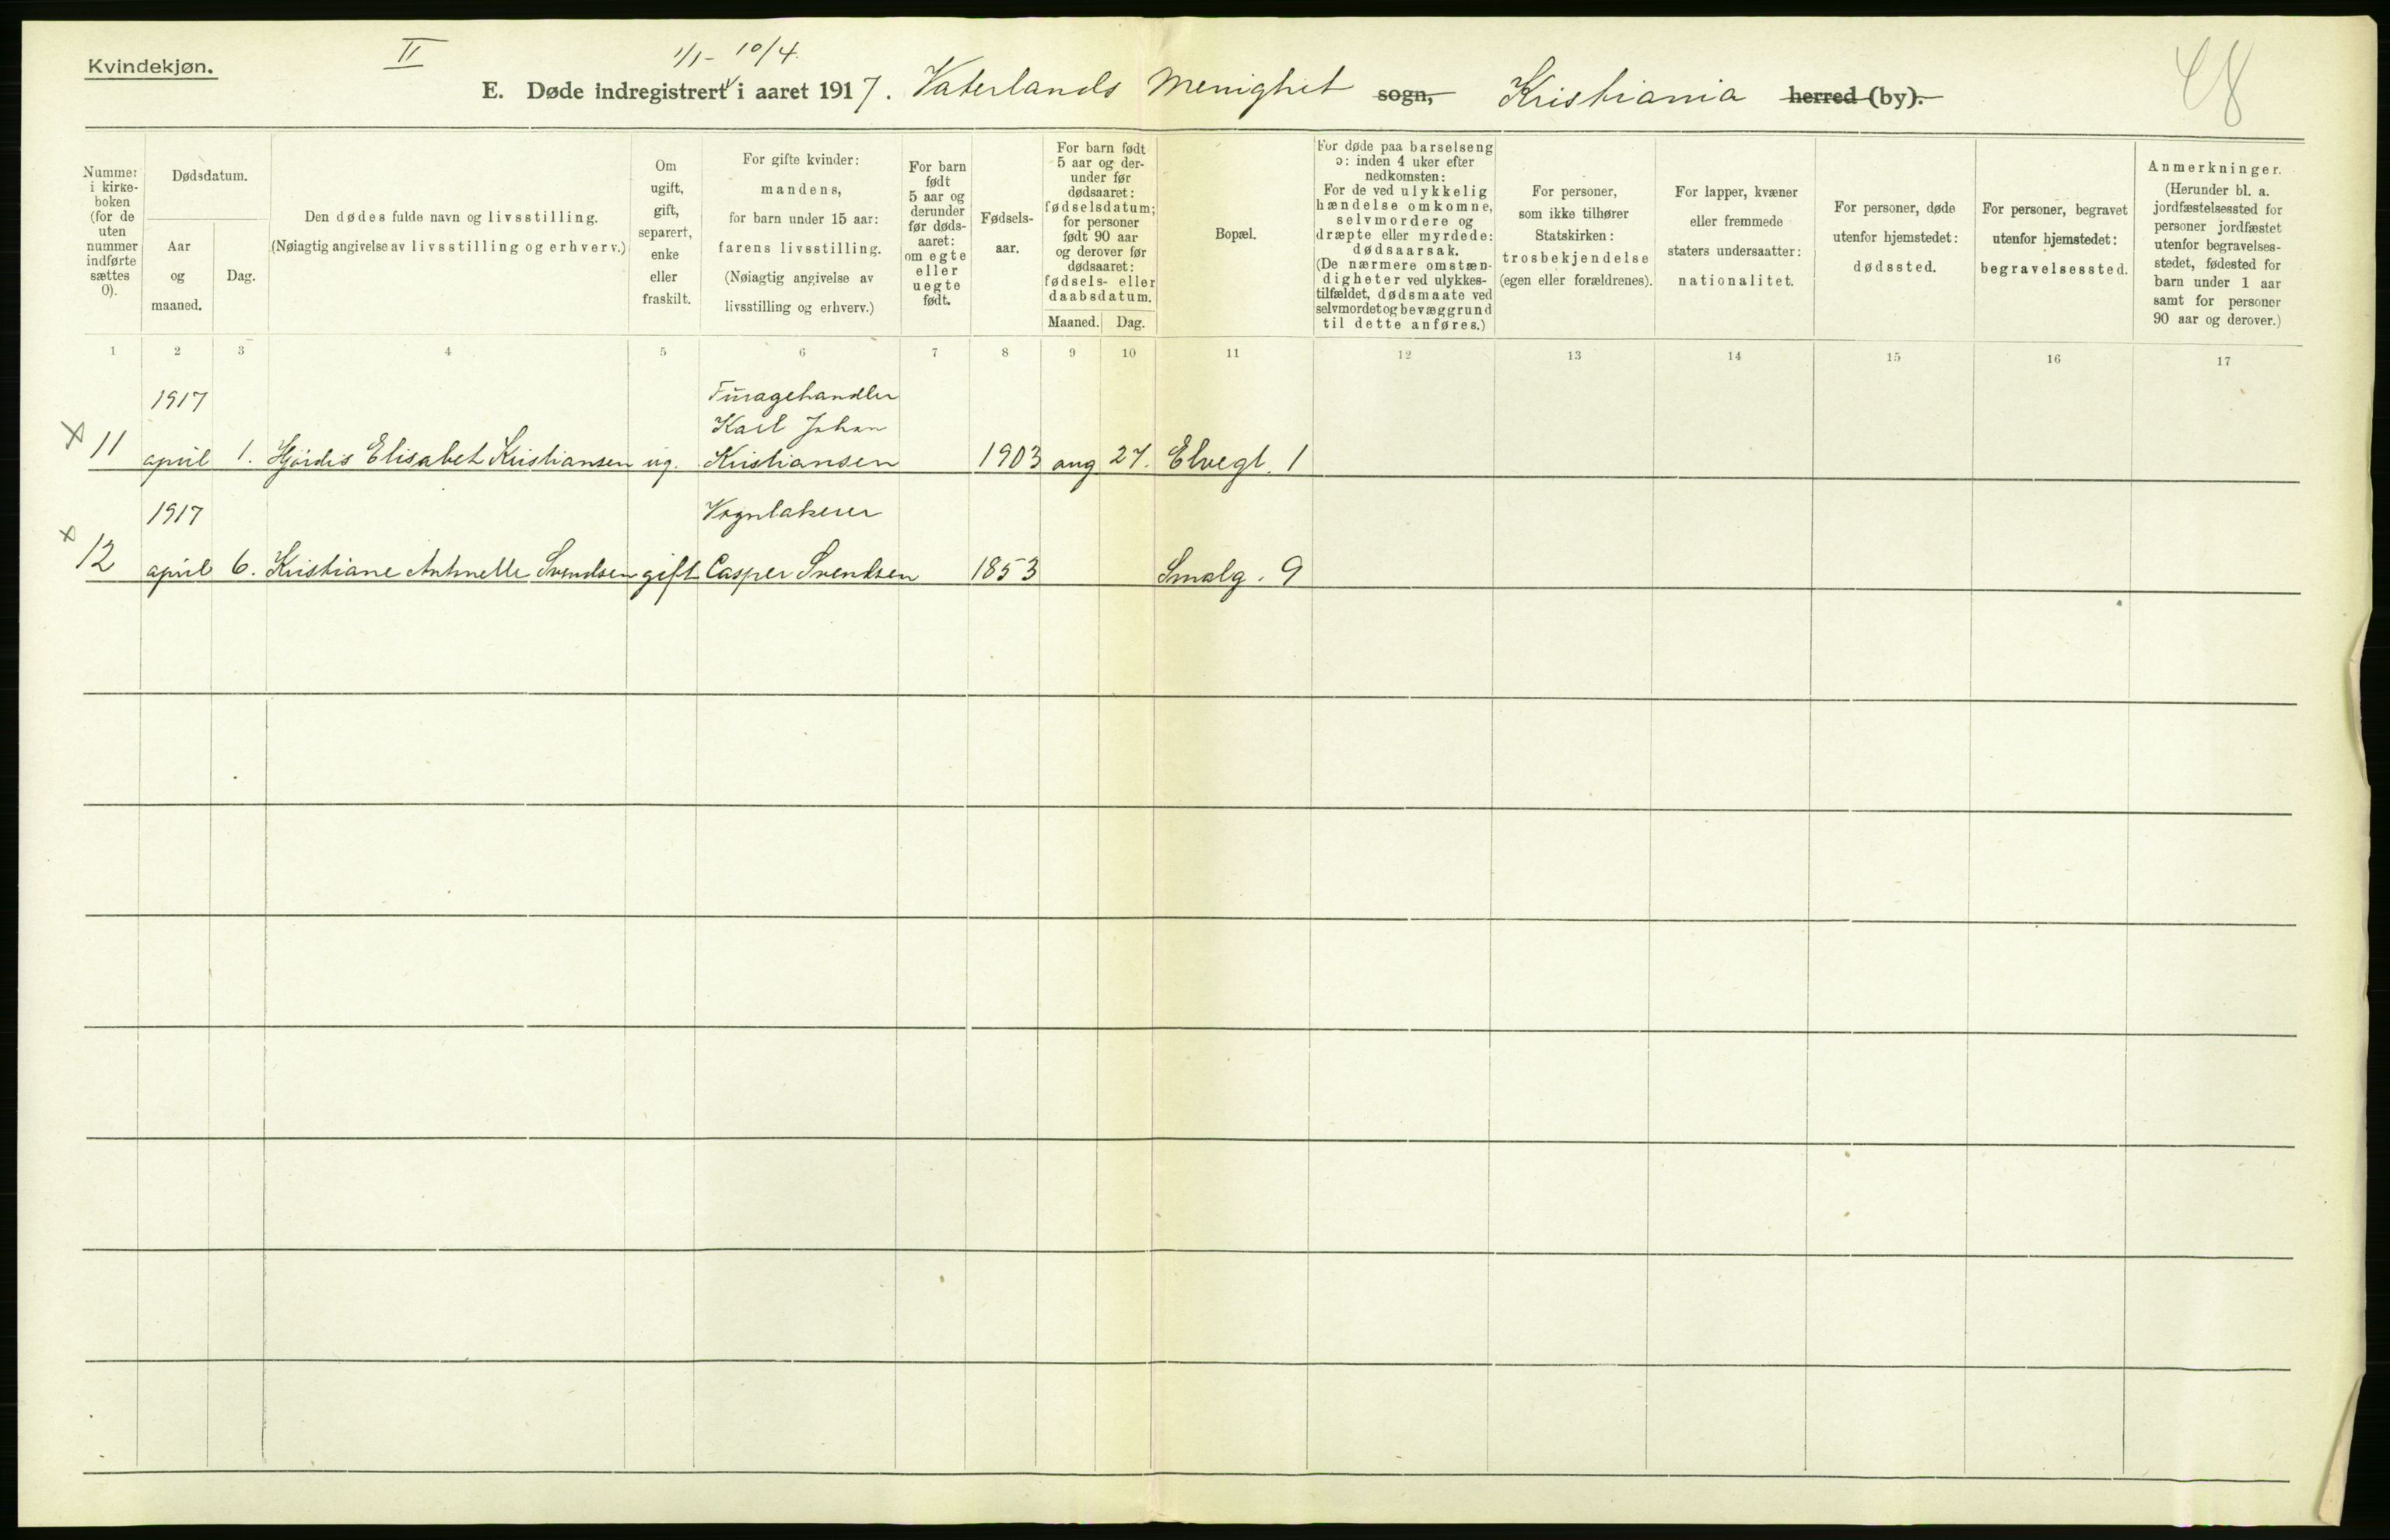 Kvindekjøn.
II
1/1 - 10/4.
48
E. Døde indregistrert i aaret 1917. Vaterlands Menighet sogn, Kristiania herred (by).
Nummer i kirke-boken (for de uten nummer indførte sættes 0).
Dødsdatum.
Aar og maaned.
Dag.
Den dødes fulde navn og livsstilling.
(Nøiagtig angivelse av livsstilling og erhverv.)
Om ugift, gift, separert, enke eller fraskilt.
For gifte kvinder: mandens, for barn under 15 aar: farens livsstilling. (Nøiagtig angivelse av livsstilling og erhverv.)
For barn født 5 aar og derunder før døds-aaret: om egte eller uegte født.
Fødsels-aar.
For barn født 5 aar og der-under før dødsaaret: fødselsdatum; for personer født 90 aar og derover før dødsaaret: fødsels- eller daabsdatum.
Maaned. Dag.
Bopæl.
For døde paa barselseng ɔ: inden 4 uker efter nedkomsten: For de ved ulykkelig hændelse omkomne, selvmordere og dræpte eller myrdede: dødsaarsak. (De nærmere omstæn-digheter ved ulykkes-tilfældet, dødsmaate ved selvmordet og bevæggrund til dette anføres.)
For personer, som ikke tilhører Statskirken: trosbekjendelse (egen eller forældrenes).
For lapper, kvæner eller fremmede staters undersaatter: nationalitet.
For personer, døde utenfor hjemstedet: dødssted.
For personer, begravet utenfor hjemstedet: begravelsessted.
Anmerkninger. (Herunder bl. a. jordfæstelsessted for personer jordfæstet utenfor begravelses-stedet, fødested for barn under 1 aar samt for personer 90 aar og derover.)
1 2 3 4 5 6 7 8 9 10 11 12 13 14 15 16 17
1917 Furagehandler
Karl Johan
x 11 april 1. Hjördis Elisabet Kristiansen ug. Kristiansen 1903 aug 27. Elvegt. 1
1917 Vognlakerer
x 12 april 6. Kristiane Antonette Svendsen gift Casper Svendsen 1853 Smalg. 9